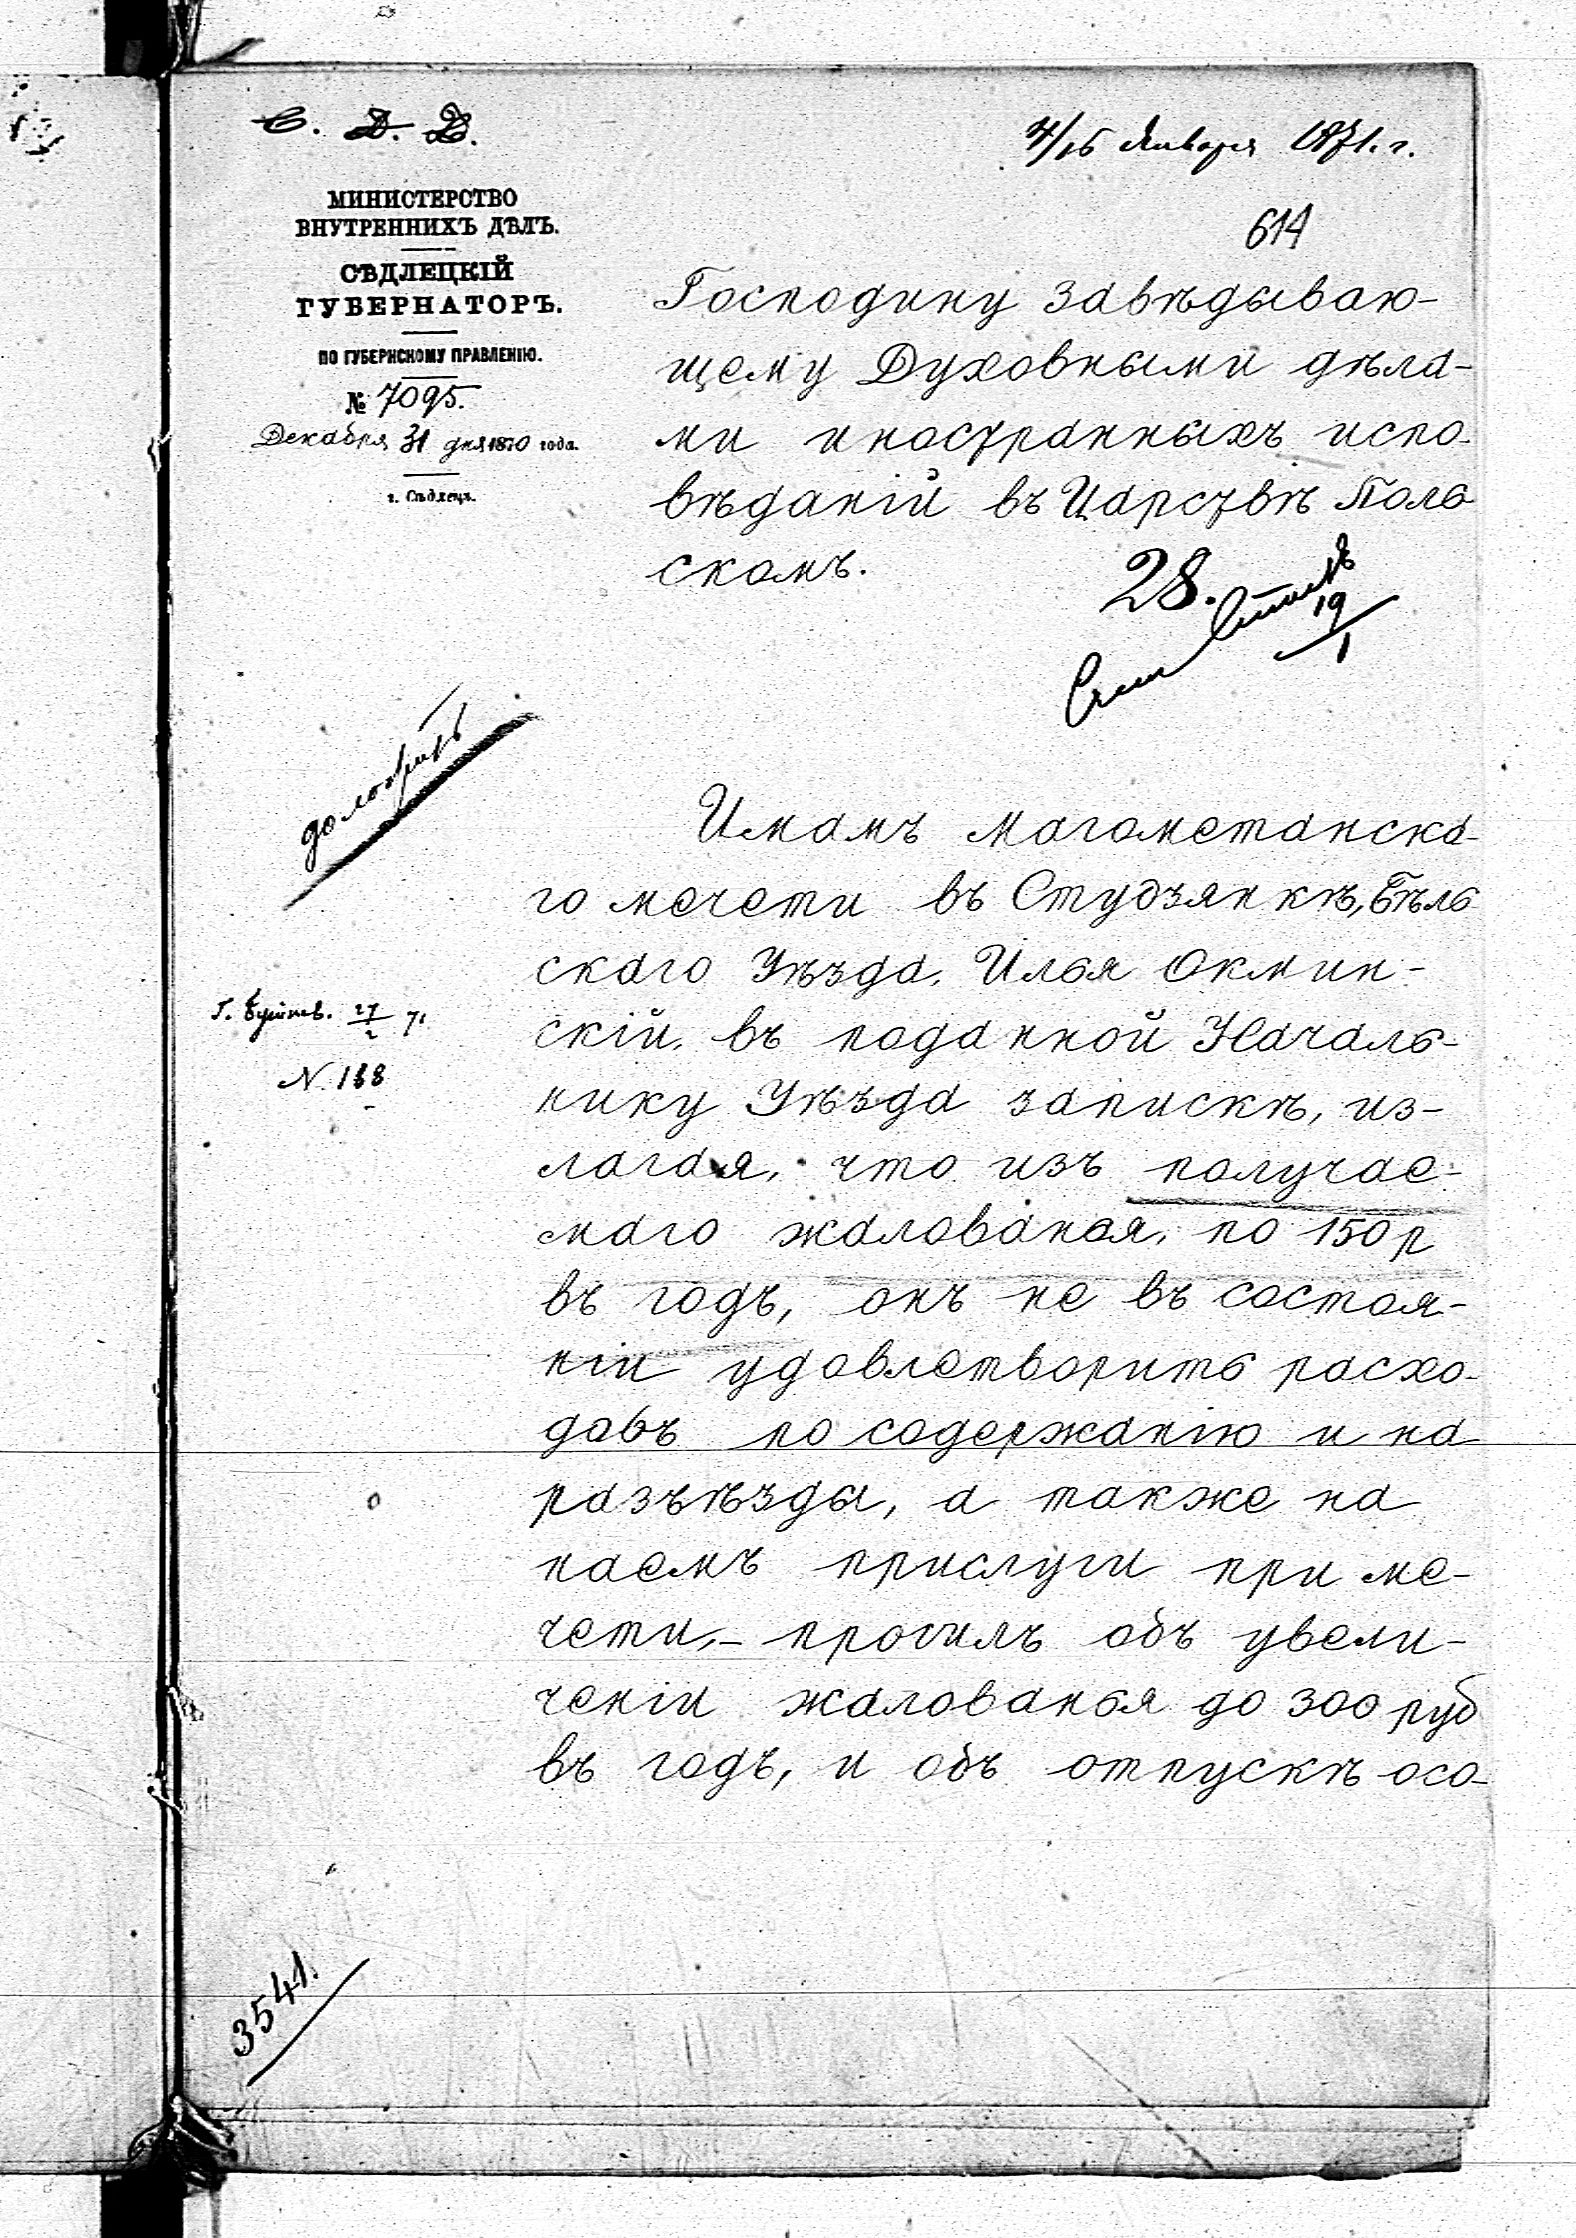 С. Д. Д.
4/16 Января 1871. г.
614
МИНИСТЕРСТВО
ВНУТРЕННИХЪ ДѢЛЪ.
СѢДЛЕЦКІЙ
ГУБЕРНАТОРЪ.
ПО ГУБЕРНСКОМУ ПРАВЛЕНІЮ.
№ 7095.
Декабря 31 дня 1870 года.
г. Сѣдлецъ.
Господину завѣдываю-
щему Духовными дѣла-
ми иностранныхъ испо-
вѣданій въ Царствѣ Поль
скомъ.
28.
19
1
доложить
Имамъ магометанска-
го мечети въ Студзянкѣ, Бѣль
скаго Уѣзда, Илья Окмин-
скій, въ поданной Началь-
нику Уѣзда запискѣ, из-
лагая, что изъ получае-
маго жалованья, по 150 р
въ годъ, онъ не въ состоя-
ніи удовлетворить расхо-
довъ по содержанію и на
разъѣзды, а также на
наемъ прислуги при ме-
чети,- просилъ объ увели-
ченіи жалованья до 300 руб
въ годъ, и объ отпускѣ осо-
Г. 27/2 71
N 188
3541.